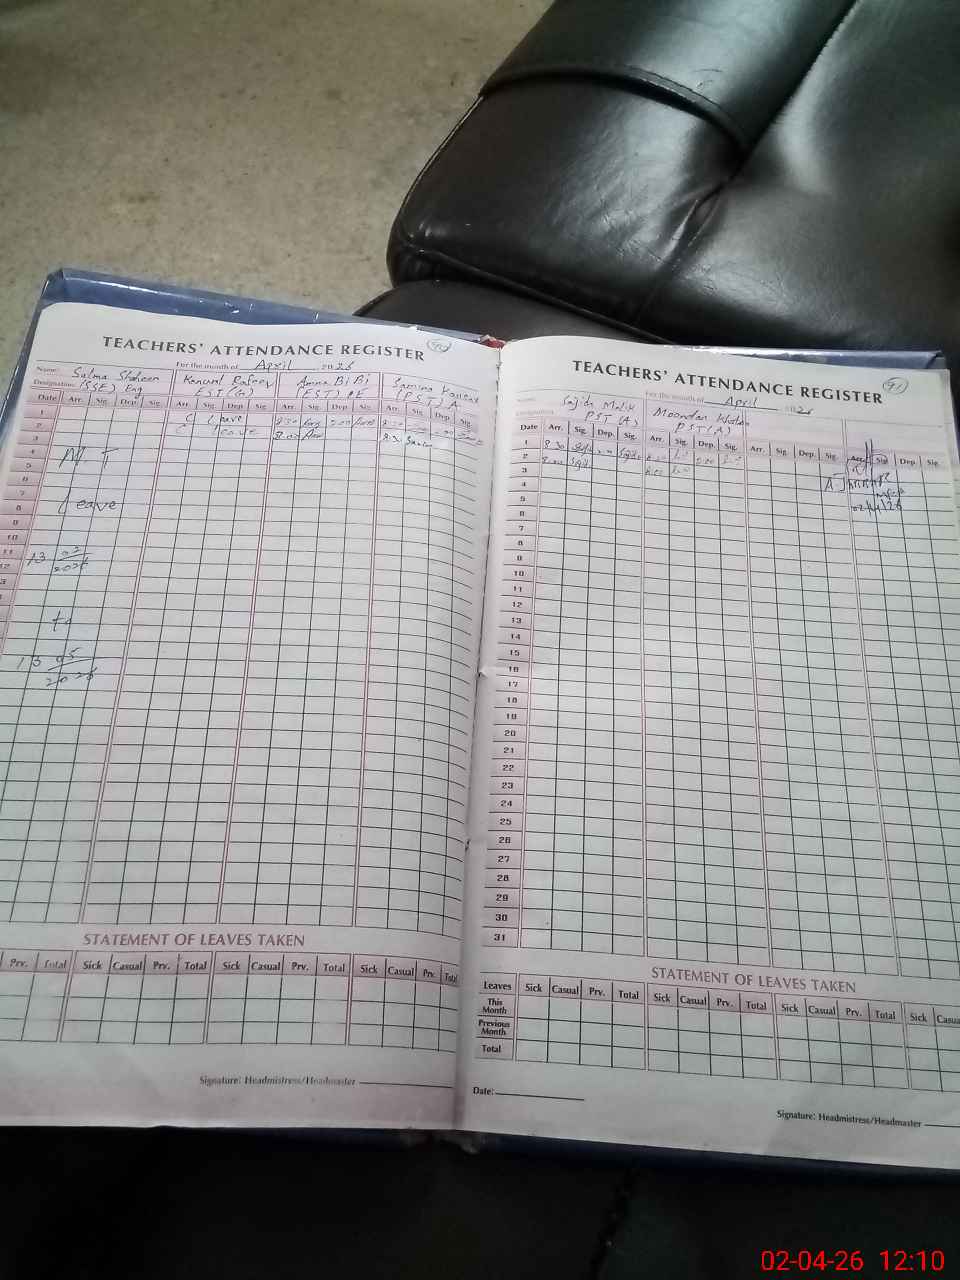 TEACHERS' ATTENDANCE REGISTER
90
For the month of April 2026
Name: Salma Shaheen Kanwal Rafeeq Amna BiBi Samina Kausar
Designation: (SSE) Eng EST (G) (EST) PE (PST) A
Date Arr. Sig. Dep. Sig. Arr. Sig. Dep. Sig. Arr. Sig. Dep. Sig. Arr. Sig. Dep. Sig.
1 C Leave 8.30 2.00 8.30
2 C Leave 8.00 8.30
3
4
5 M. T
6
7
8 Leave
9
10
11 13 03
12 2026
to
13 05
2026
STATEMENT OF LEAVES TAKEN
Prv. Total Sick Casual Prv. Total Sick Casual Prv. Total Sick Casual Prv. Total
Signature: Headmistress/Headmaster
TEACHERS' ATTENDANCE REGISTER
91
For the month of April 2026
Name: Sajida Malik
Designation: PST (A) PST (A)
Date Arr. Sig. Dep. Sig. Arr. Sig. Dep. Sig. Arr. Sig. Dep. Sig. Arr. Sig. Dep. Sig.
1 8.30
2 8.00 8.00
3
4
5 02/4/26
6
7
8
9
10
11
12
13
14
15
16
17
18
19
20
21
22
23
24
25
26
27
28
29
30
31
STATEMENT OF LEAVES TAKEN
Leaves Sick Casual Prv. Total Sick Casual Prv. Total Sick Casual Prv. Total Sick
This Month
Previous Month
Total
Date:
Signature: Headmistress/Headmaster
02-04-26 12:10